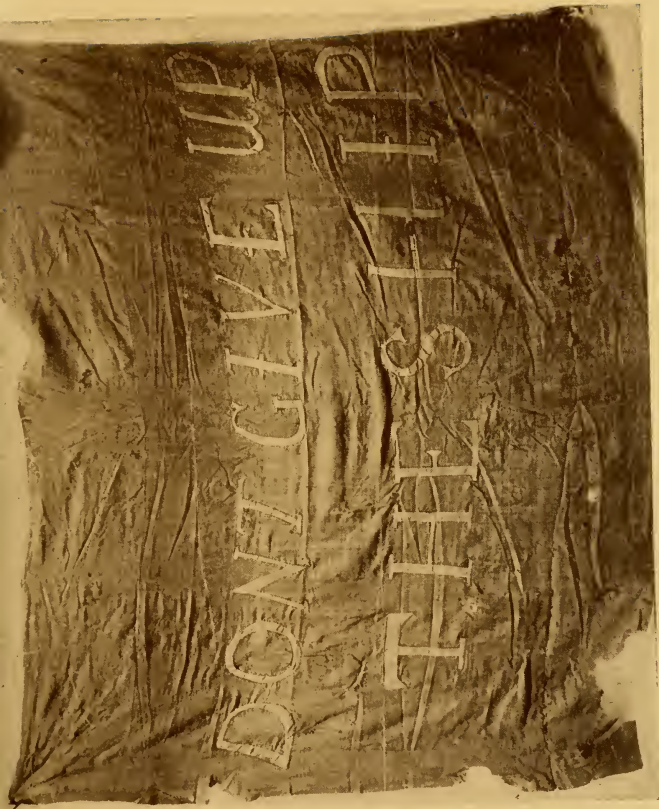 DONT GIVE UP
THE SHIP